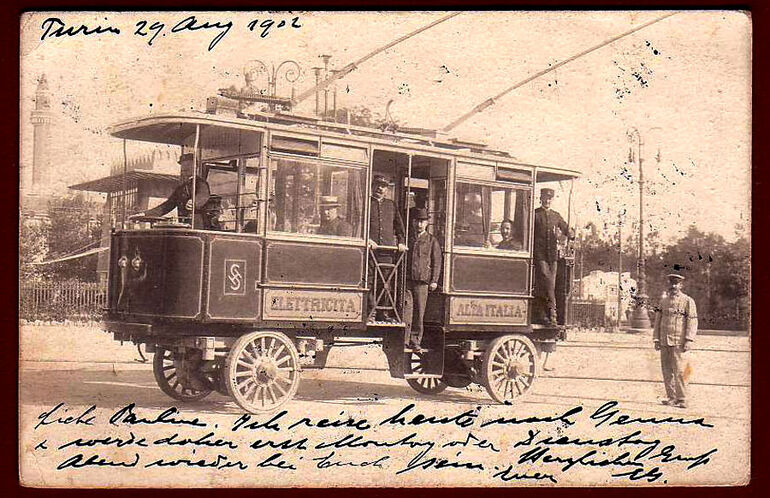 Turin 29 Aug 1902
ELETTRICITA
ALTA ITALIA
Liebe Pauline. Ich reise heute nach Genua
& werde daher erst Montag oder Dienstag
Abend wieder bei Euch sein. Herzlichen Gruss